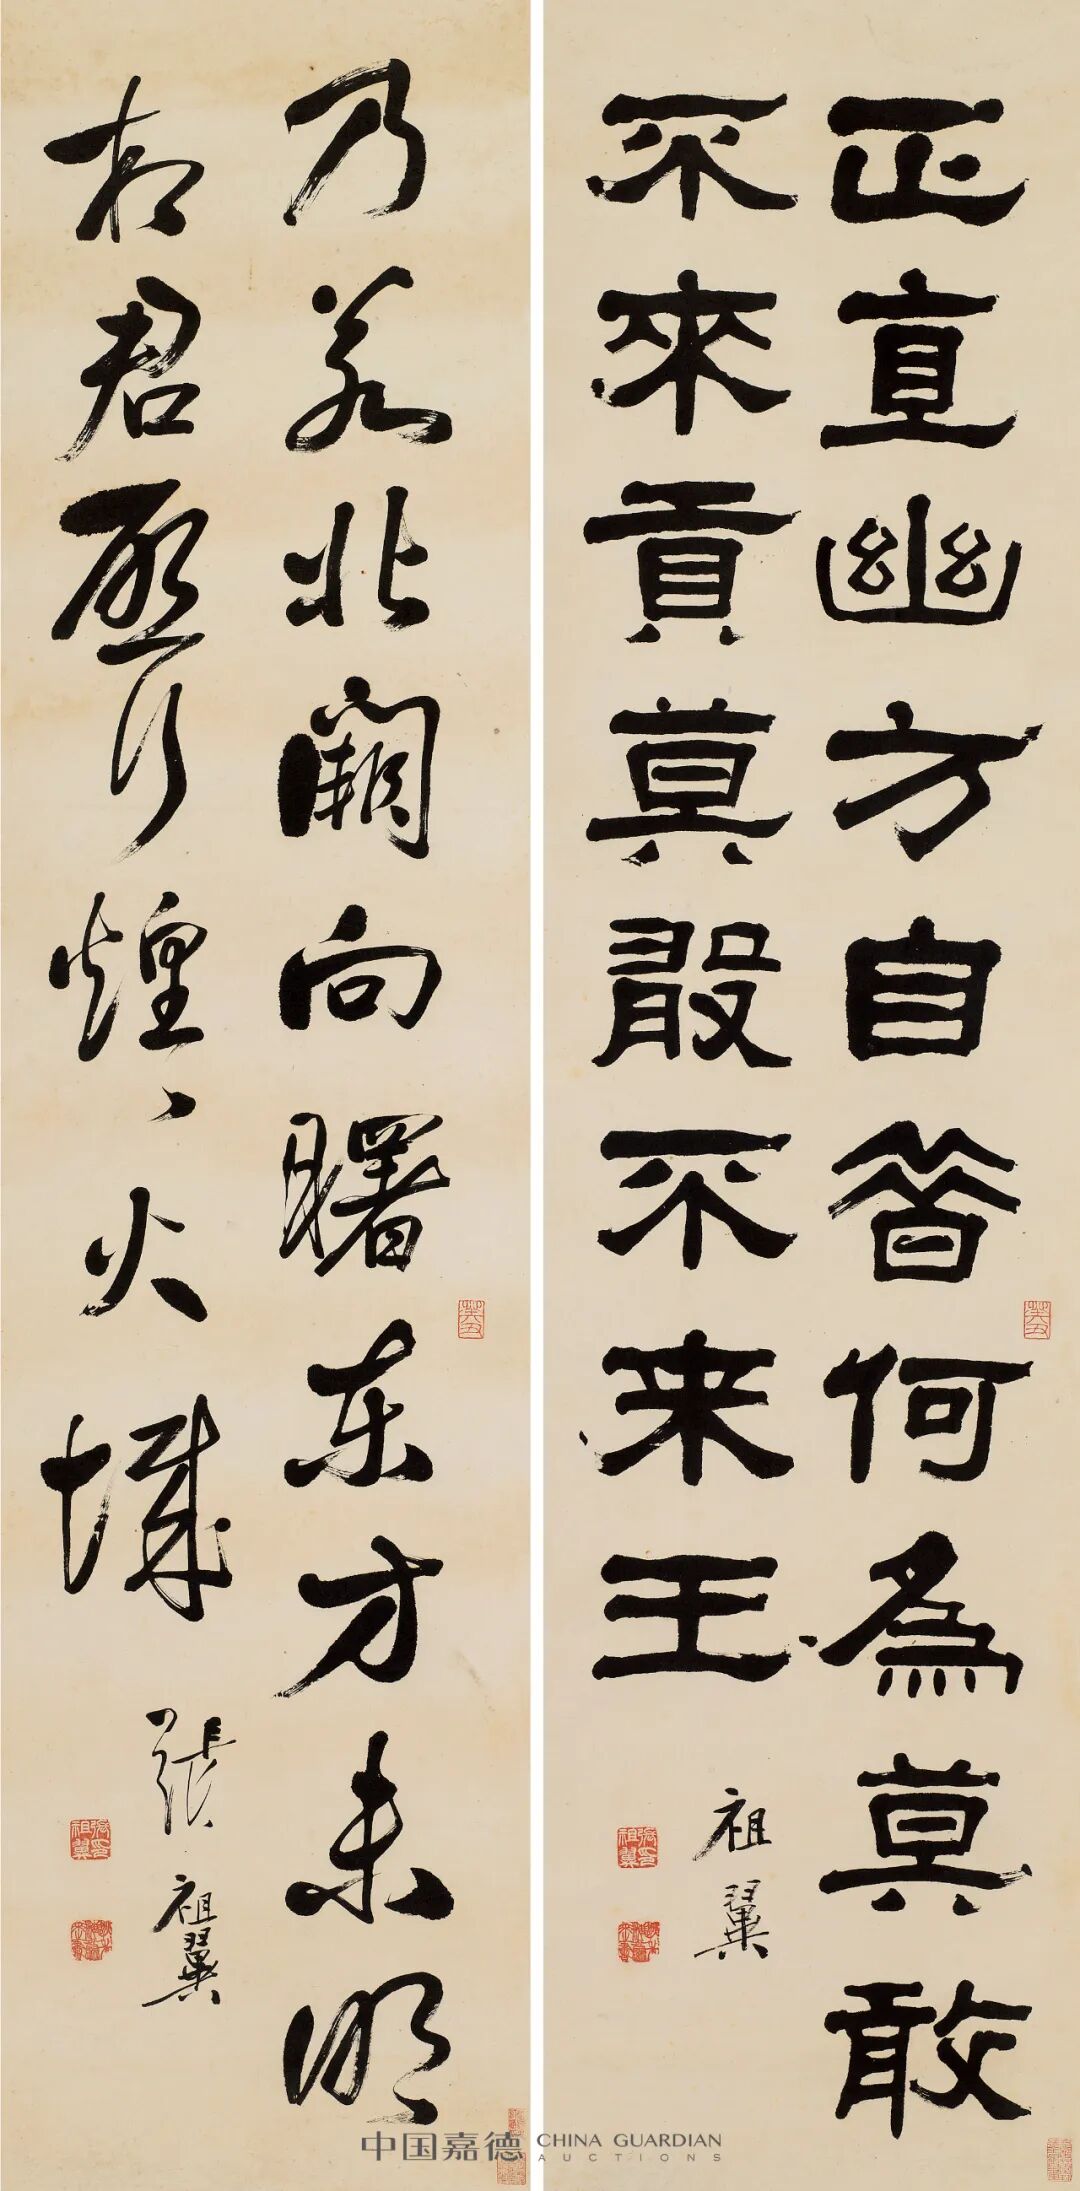 正直幽方自昔何為莫敢
不來貢莫敢不来王
祖翼
乃若北闕向曙東方未明
相君啟行煌煌火城
張祖翼
癸丑
癸丑
中国嘉德 CHINA GUARDIAN
AUCTIONS